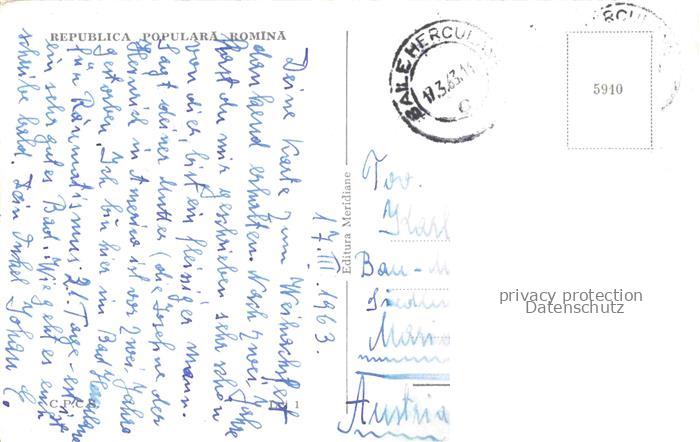 REPUBLICA POPULARĂ ROMÎNĂ
17.III.1963.
Deine Karte zum Weihnachtsfest
dankend erhalten. Nach zwei Jahre
hast du mir geschrieben sehr schön
von dir, bist ein fleissiger mann.
Sagt deiner Mutter (die Josefine der
Heinrich in America ist vor zwei Jahre
gestorben. Ich bin hier im Bad
für Räumatismus 21. Tage - ist
ein sehr gutes Bad. Wie geht es euch
schreibe bald. Dein Onkel Johan
C.P.C.
1
Editura Meridiane
BAILE HERCUL
17.3.63
5910
Tov.
Karl
Bau-
Mari
Austria
privacy protection
Datenschutz